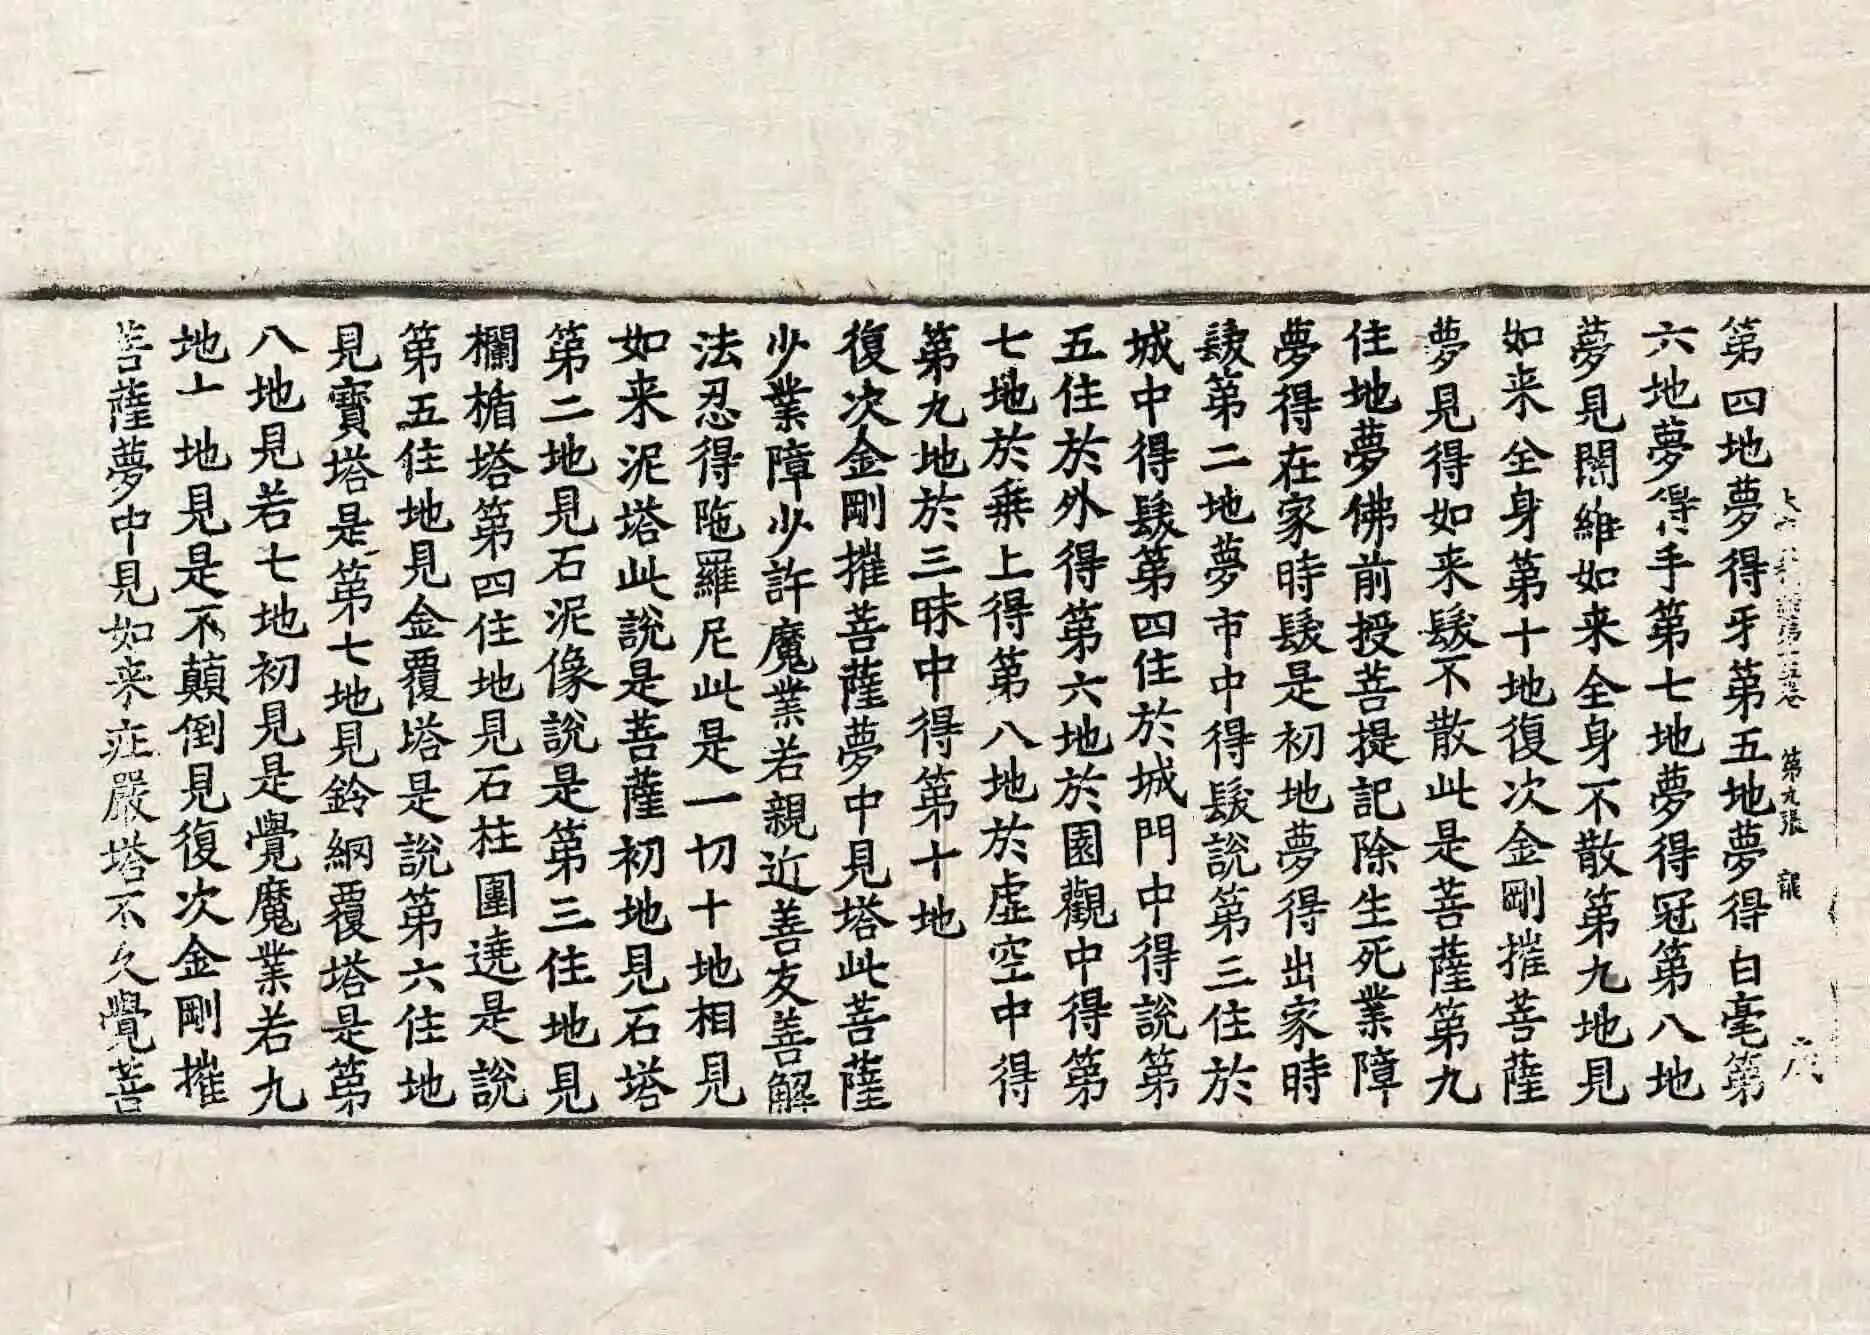 第四地夢得牙第五地夢得白毫第
六地夢得手第七地夢得冠第八地
夢見闍維如来全身不散第九地見
如来全身第十地復次金剛摧菩薩
夢見得如来髮不散此是菩薩第九
住地夢佛前授菩提記除生死業障
夢得在家時髮是初地夢得出家時
髮第二地夢市中得髮說第三住於
城中得髮第四住於城門中得說第
五住於外得第六地於園觀中得第
七地於乗上得第八地於虛空中得
第九地於三昧中得第十地
復次金剛摧菩薩夢中見塔此菩薩
少業障少許魔業若親近善友善解
法忍得陁羅尼此是一切十地相見
如来泥塔此說是菩薩初地見石塔
第二地見石泥像說是第三住地見
欄楯塔第四住地見石柱圍遶是說
第五住地見金覆塔是說第六住地
見寶塔是第七地見鈴網覆塔是第
八地見若七地初見是覺魔業若九
地十地見是不顛倒見復次金剛摧
菩薩夢中見如来庄嚴塔不久覺菩
第九張 龍